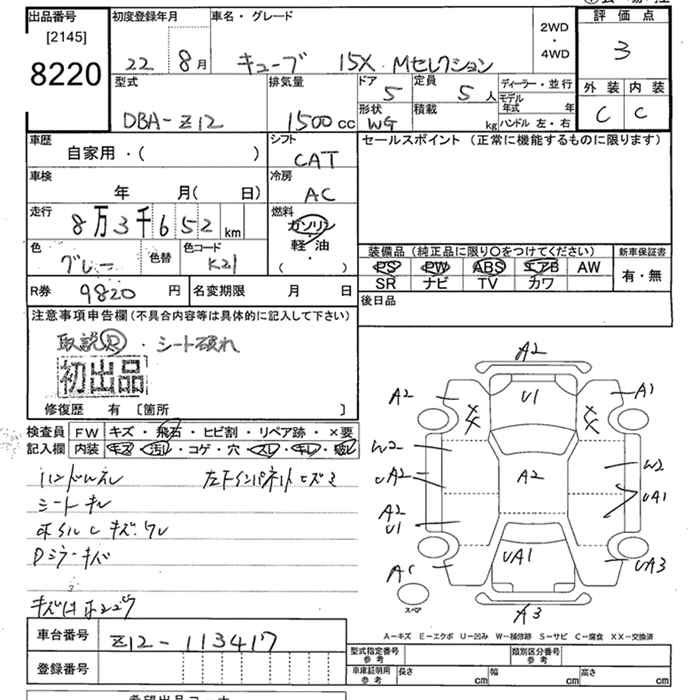 出品番号
[2145]
8220
初度登録年月
22 8月
車名・グレード
キューブ 15X Mセレクション
2WD
・
4WD
評価点
3
外装 内装
C C
型式
DBA-Z12
排気量
1500cc
ドア 5
定員 5人
形状 WG
積載 kg
ディーラー・並行
モデル年式 年
ハンドル 左・右
車歴
自家用・( )
シフト
CAT
セールスポイント (正常に機能するものに限ります)
車検
年 月( 日)
冷房
AC
走行
8万3千652km
燃料
ガソリン
軽・油
( ・ )
色
グレー
色替
色コード
K21
装備品 (純正品に限り○をつけてください)
PS PW ABS エアB AW
SR ナビ TV カワ
新車保証書
有・無
R券 9820円
名変期限 月 日
後日品
注意事項申告欄 (不具合内容等は具体的に記入して下さい)
取説R ・ シート破れ
初出品
修復歴 有 [箇所 ]
検査員記入欄
FW キズ・飛石・ヒビ割・リペア跡・×要
内装 キズ・汚れ・コゲ・穴・スレ・キレ・破レ
ハンドルスレ
シートキレ
ホイルLキズ.ワレ
Dミラーキズ
A2
U1
A2
A1
XX
XX
W2
UA2
A2
U1
A2
W2
UA1
UA1
A1
UA3
スペア
A3
A-キズ E-エクボ U-凹み W-補修跡 S-サビ C-腐食 XX-交換済
車台番号 Z12-113417
登録番号
型式指定番号 参考
類別区分番号 参考
車庫証明用 参考
長さ cm
幅 cm
高さ cm